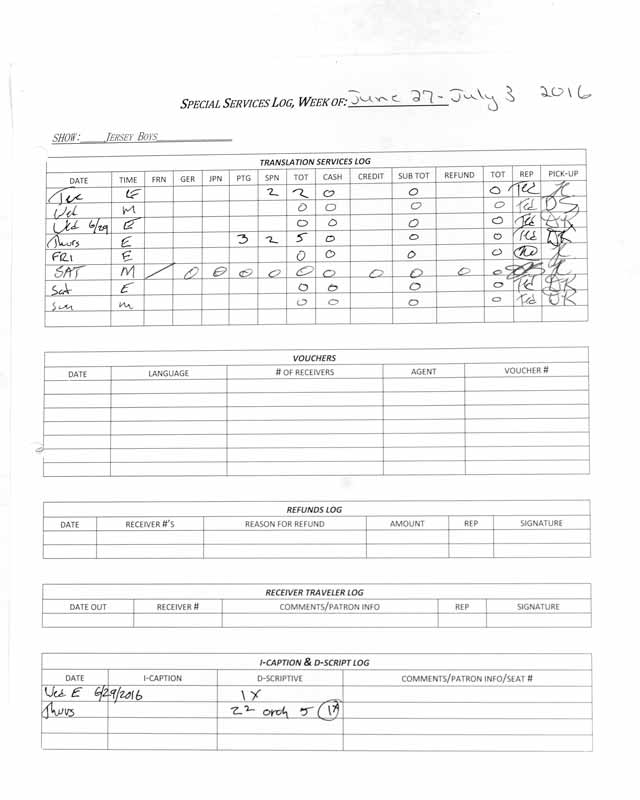 SPECIAL SERVICES LOG, WEEK OF: June 27-July 3 2016
SHOW: JERSEY BOYS
TRANSLATION SERVICES LOG
DATE TIME FRN GER JPN PTG SPN TOT CASH CREDIT SUB TOT REFUND TOT REP PICK-UP
Tue E 2 2 0 0 0 Ted
Wed M 0 0 0 0 Ted DS
Wed 6/29 E 0 0 0 0 Ted DK
Thurs E 3 2 5 0 0 0 Ted DK
FRI E 0 0 0 0
SAT M / 0 0 0 0 0 0 0 0 0 0
Sat E 0 0 0 0 Ted DK
Sun M 0 0 0 0 Ted DK
VOUCHERS
DATE LANGUAGE # OF RECEIVERS AGENT VOUCHER #
REFUNDS LOG
DATE RECEIVER #'S REASON FOR REFUND AMOUNT REP SIGNATURE
RECEIVER TRAVELER LOG
DATE OUT RECEIVER # COMMENTS/PATRON INFO REP SIGNATURE
I-CAPTION & D-SCRIPT LOG
DATE I-CAPTION D-SCRIPTIVE COMMENTS/PATRON INFO/SEAT #
Wed E 6/29/2016 1X
Thurs 22 orch 5 1X